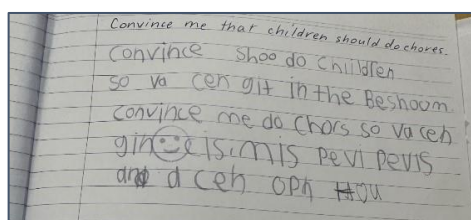 Convince me that children should do chores.
convince shoo do Chilldren
so va cen git in the Beshoom
convince me do Chors so va ceh
gin cis.mis pevi pevis
and a ceh oph you